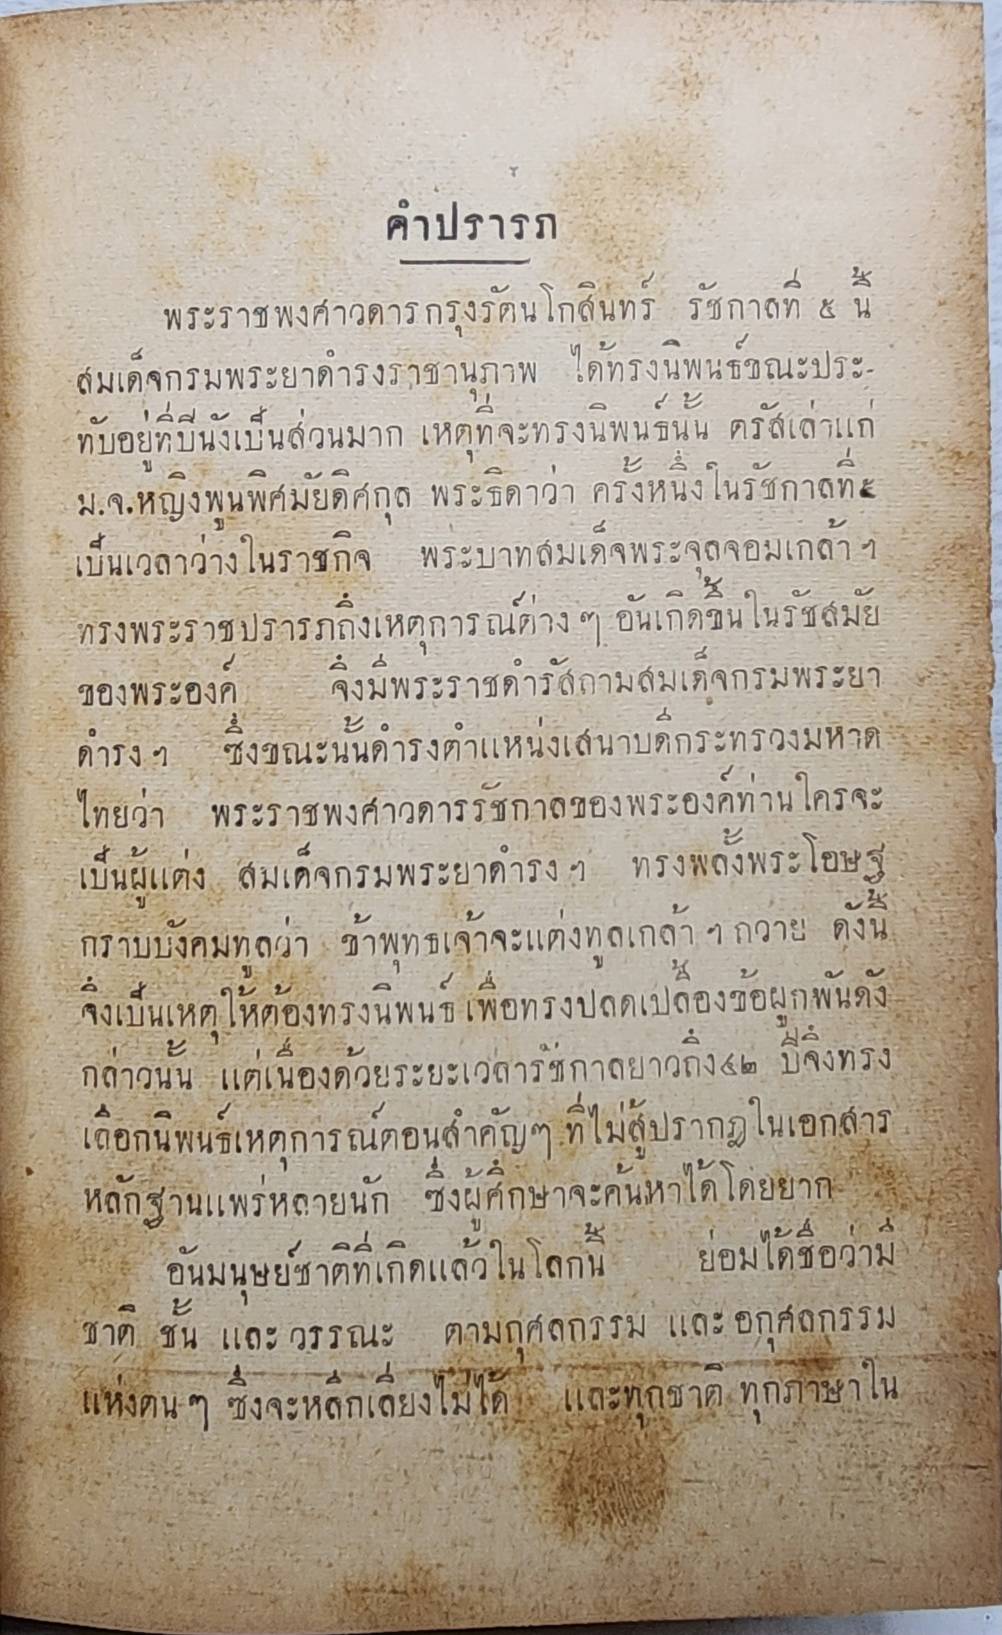 คำปรารภ
พระราชพงศาวดารกรุงรัตนโกสินทร์ รัชกาลที่ ๕ นี้
สมเด็จกรมพระยาดำรงราชานุภาพ ได้ทรงนิพนธ์ขณะประ-
ทับอยู่ที่ปีนังเป็นส่วนมาก เหตุที่จะทรงนิพนธ์นั้น ตรัสเล่าแก่
ม.จ.หญิงพูนพิศมัยดิศกุล พระธิดาว่า ครั้งหนึ่งในรัชกาลที่๕
เป็นเวลาว่างในราชกิจ พระบาทสมเด็จพระจุลจอมเกล้าฯ
ทรงพระราชปรารภถึงเหตุการณ์ต่างๆ อันเกิดขึ้นในรัชสมัย
ของพระองค์ จึงมีพระราชดำรัสถามสมเด็จกรมพระยา
ดำรงฯ ซึ่งขณะนั้นดำรงตำแหน่งเสนาบดีกระทรวงมหาด
ไทยว่า พระราชพงศาวดารรัชกาลของพระองค์ท่านใครจะ
เป็นผู้แต่ง สมเด็จกรมพระยาดำรงฯ ทรงพลั้งพระโอษฐ
กราบบังคมทูลว่า ข้าพุทธเจ้าจะแต่งทูลเกล้าฯถวาย ดังนี้
จึงเป็นเหตุให้ต้องทรงนิพนธ์เพื่อทรงปลดเปลื้องข้อผูกพันดัง
กล่าวนั้น แต่เนื่องด้วยระยะเวลารัชกาลยาวถึง๔๒ ปีจึงทรง
เลือกนิพนธ์เหตุการณ์ตอนสำคัญๆ ที่ไม่สู้ปรากฏในเอกสาร
หลักฐานแพร่หลายนัก ซึ่งผู้ศึกษาจะค้นหาได้โดยยาก
อันมนุษย์ชาติที่เกิดแล้วในโลกนี้ ย่อมได้ชื่อว่ามี
ชาติ ชั้น และ วรรณะ ตามกุศลกรรม และ อกุศลกรรม
แห่งตนๆ ซึ่งจะหลีกเลี่ยงไม่ได้ และทุกชาติ ทุกภาษาใน